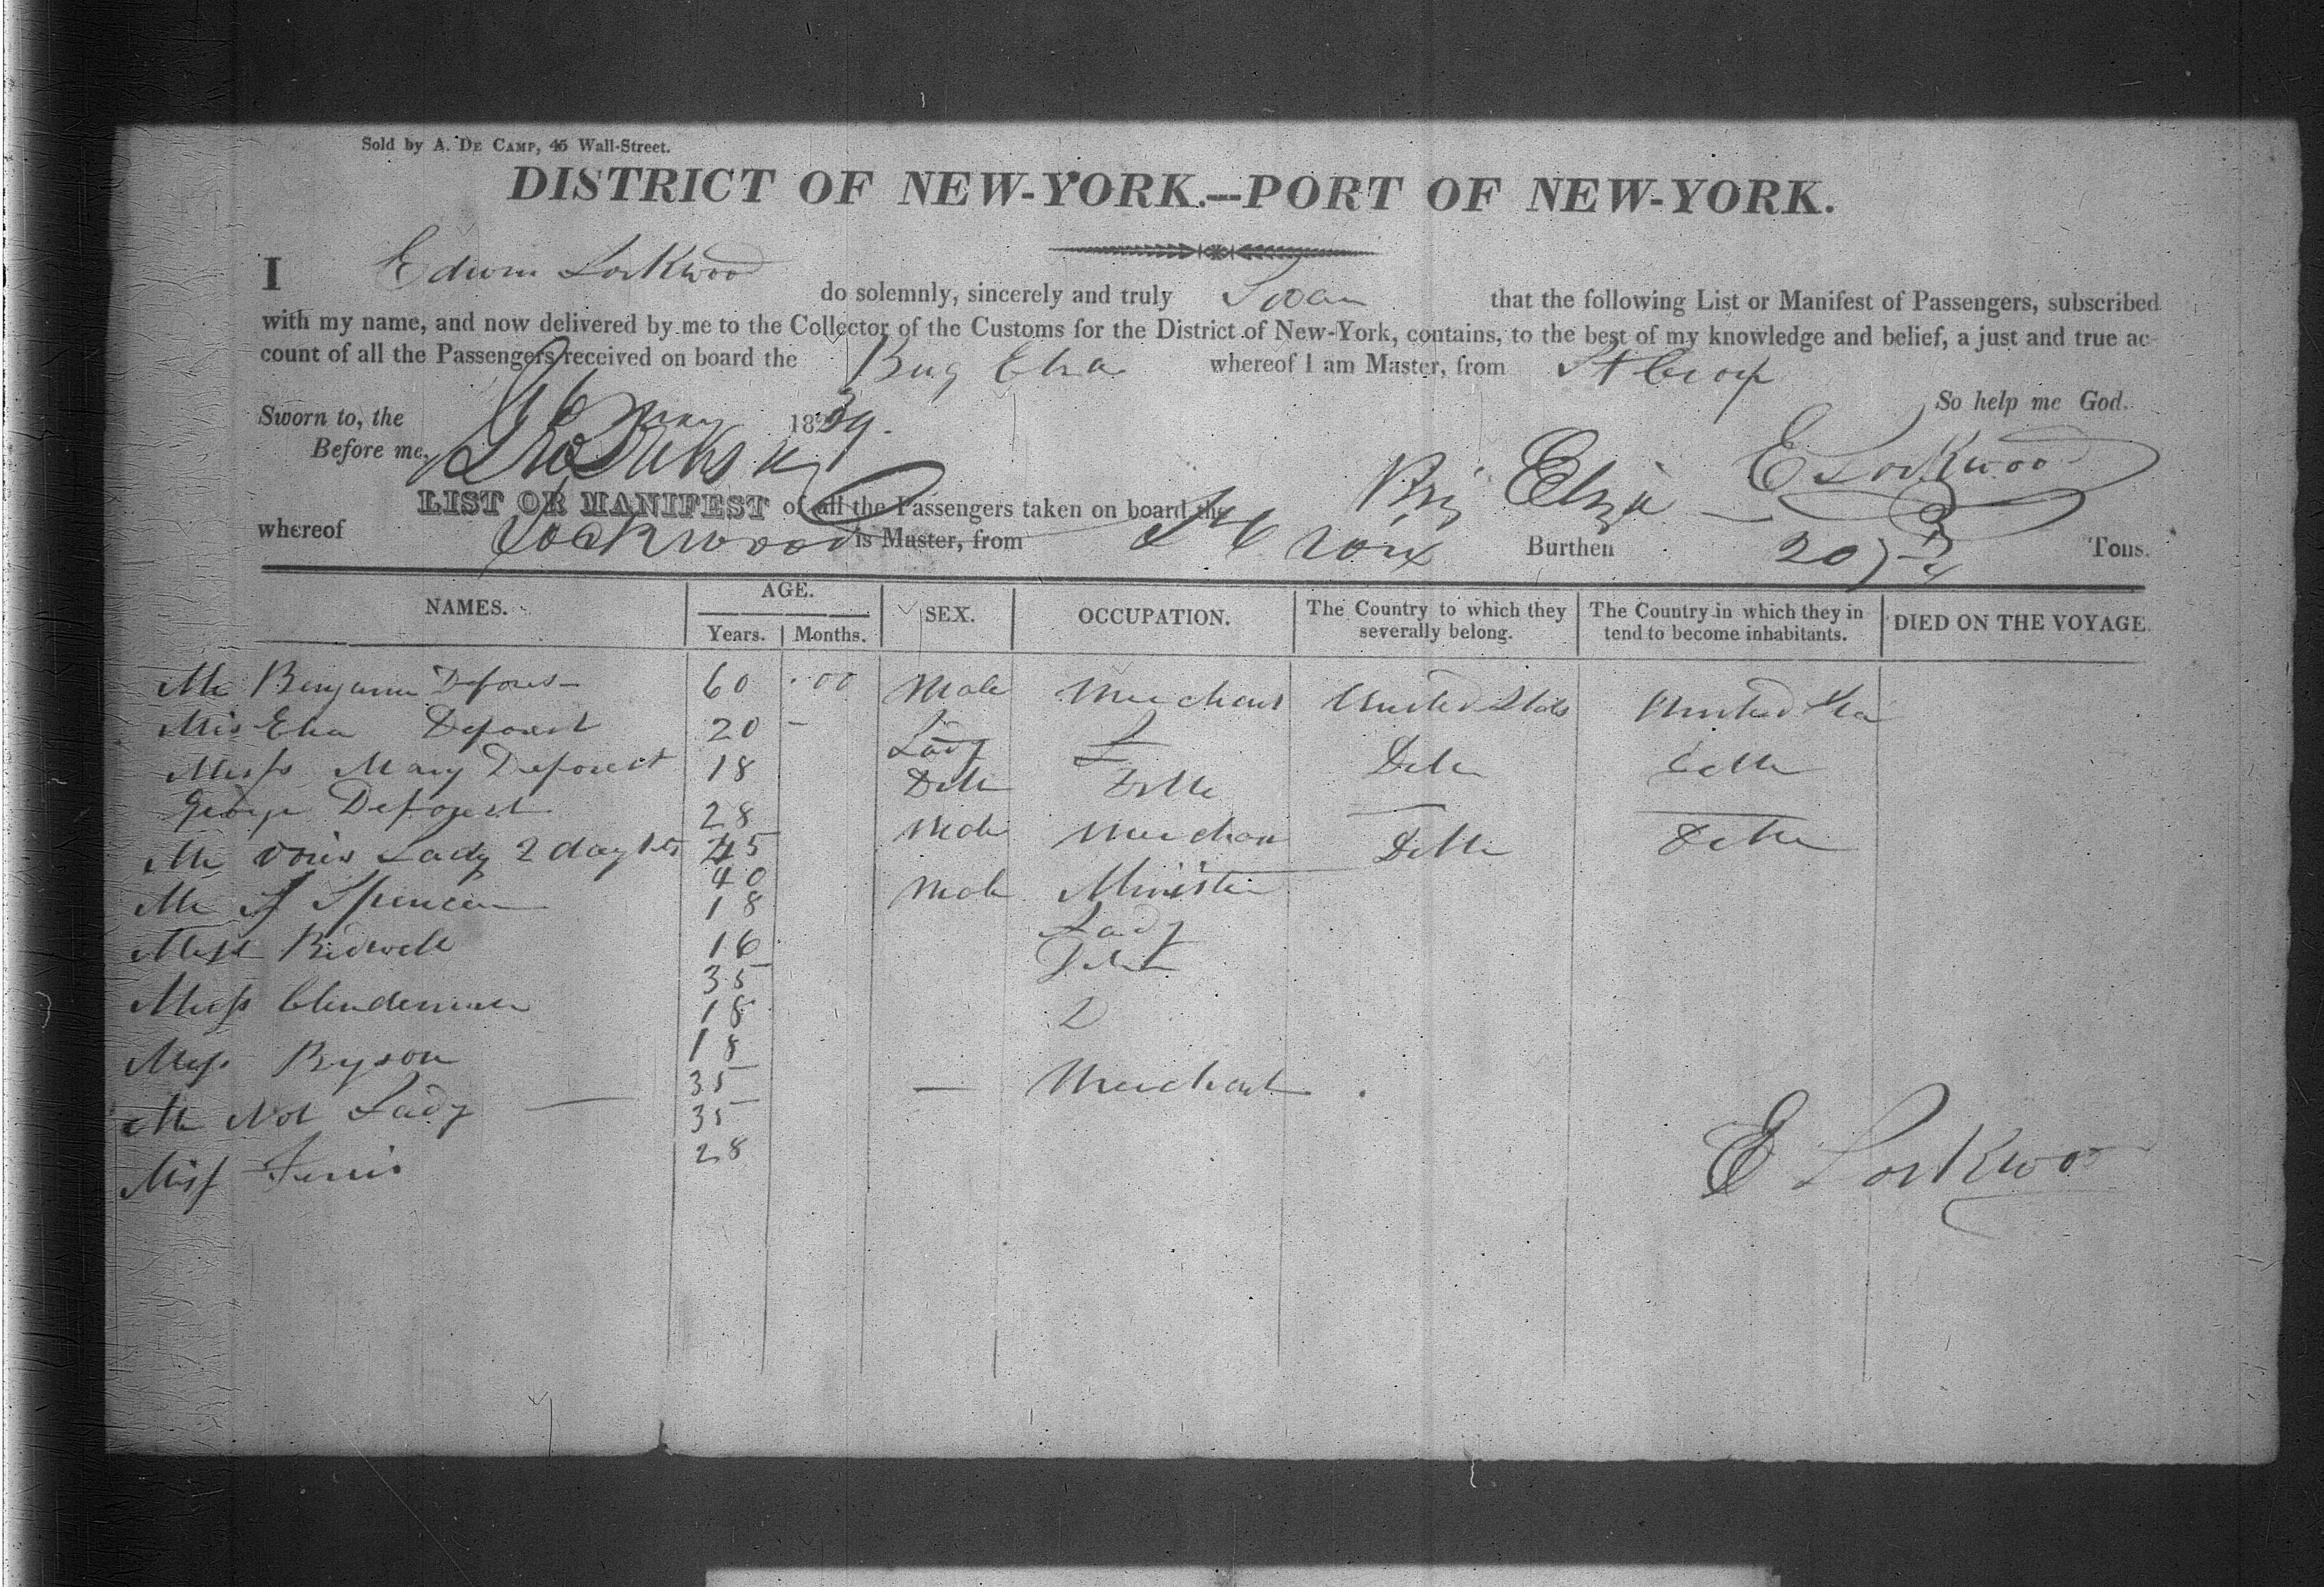 Sold by A. DE CAMP, 45 Wall-Street.
DISTRICT OF NEW-YORK.—PORT OF NEW-YORK.
I Edwin Lockwood do solemnly, sincerely and truly Swear that the following List or Manifest of Passengers, subscribed
with my name, and now delivered by me to the Collector of the Customs for the District of New-York, contains, to the best of my knowledge and belief, a just and true ac-
count of all the Passengers received on board the Brig Eliza whereof I am Master, from St Croix
So help me God.
Sworn to, the 26 May 1829.
Before me, E Lockwood
LIST OR MANIFEST of all the Passengers taken on board the Brig Eliza
whereof Lockwood is Master, from St Croix Burthen 207 Tons.
NAMES. AGE. SEX. OCCUPATION. The Country to which they severally belong. The Country in which they in tend to become inhabitants. DIED ON THE VOYAGE.
Years. Months.
Mr Benjamin Deforest 60 00 Male Merchant United States United Sta
Mis Eliza Deforest 20 - Lady
Miss Mary Deforest 18 Ditto Ditto Ditto Ditto
George Deforest 28 Male Merchant Ditto Ditto
Mr Lady 2 daughts 45
40 Male Minister
Mr Spencer 18 Lady
Miss Bidwell 16 Ditto
35
Miss 18
18
Miss Byson 35 — Merchant
Mr Lady — 35
Miss 28
E Lockwood